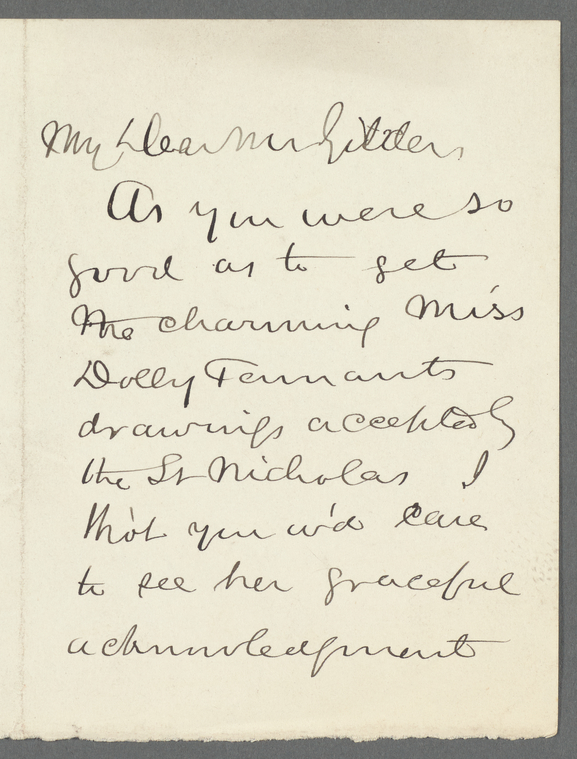 My Dear Mr Gilder
As you were so
good as to get
the charming Miss
Dolly Tennants
drawings accepted by
the St Nicholas I
tho't you w'd care
to see her graceful
acknowledgment